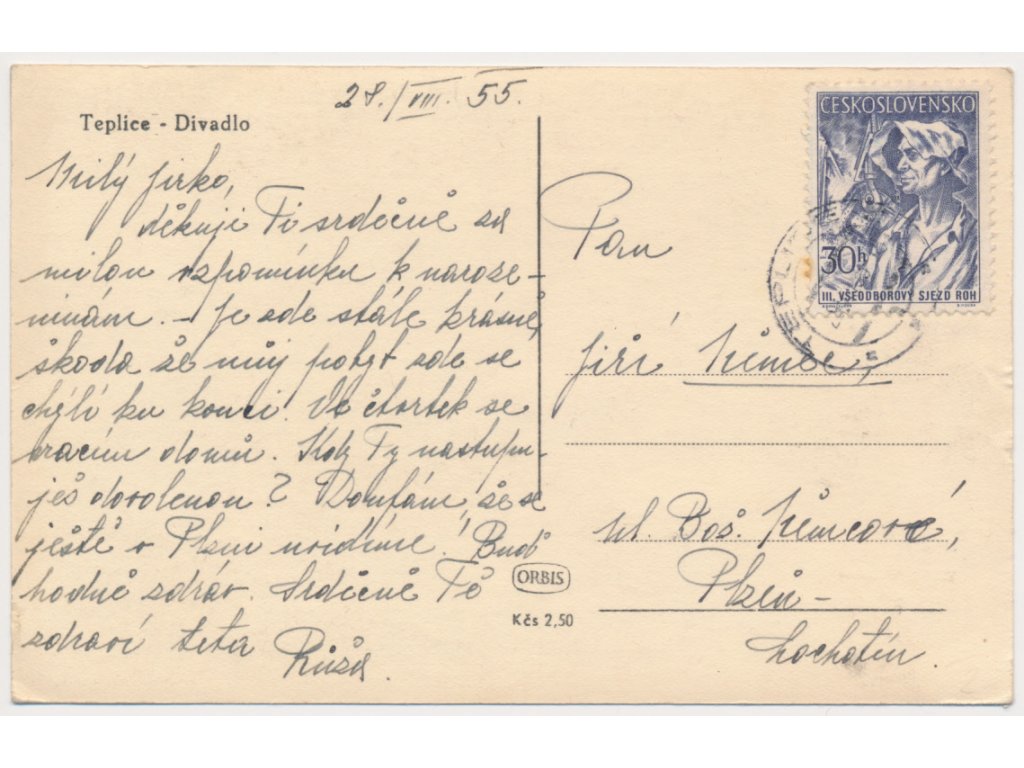 28./VIII. 55.
Teplice - Divadlo
Milý Jirko,
děkuji Ti srdečně za
milou vzpomínku k naroze-
ninám. - Je zde stále krásně,
škoda že můj pobyt zde se
chýlí ku konci. Ve čtvrtek se
vracím domů. Kdy Ty nastupu-
ješ dovolenou? Doufám, že se
ještě v Plzni uvidíme! Buď
hodně zdráv. Srdečně Tě
zdraví teta
Růža.
ORBIS
Kčs 2,50
ČESKOSLOVENSKO
30h
III. VŠEODBOROVÝ SJEZD ROH
Pan
Jiří Němec,
ul. Bož. Němcové,
Plzeň -
Lochotín.